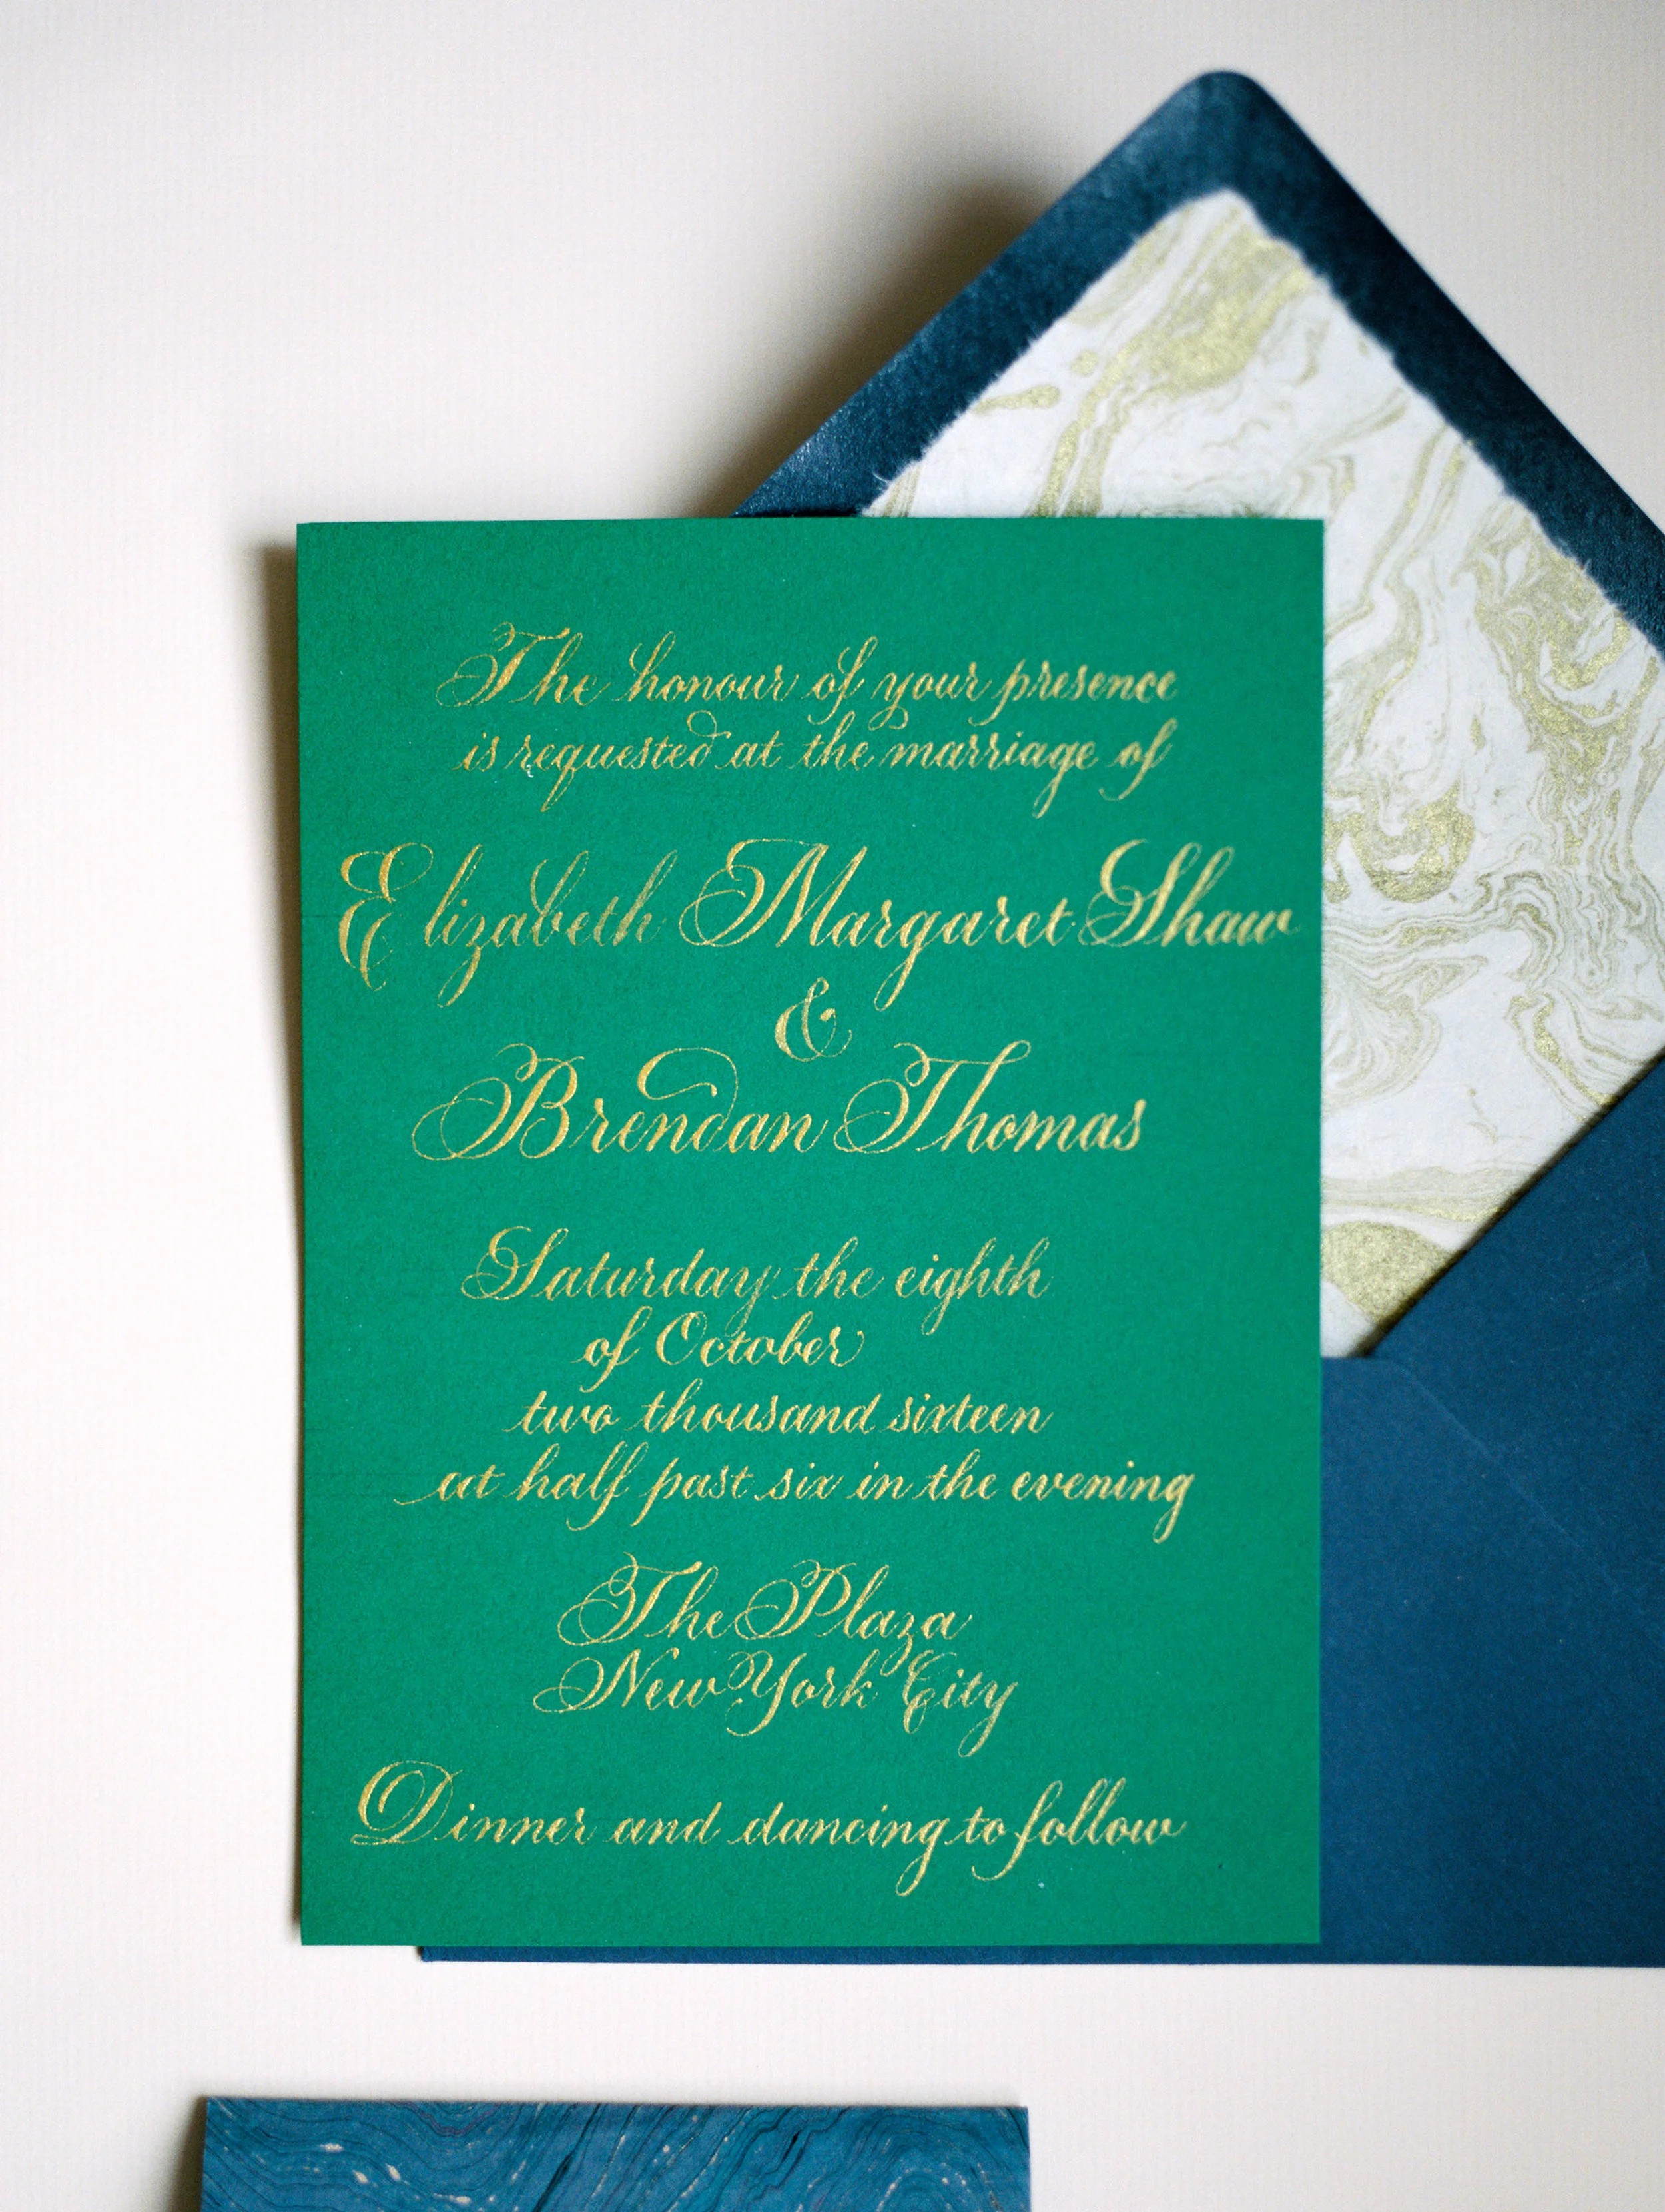 The honour of your presence
is requested at the marriage of
Elizabeth Margaret Shaw
&
Brendan Thomas
Saturday the eighth
of October
two thousand sixteen
at half past six in the evening
The Plaza
New York City
Dinner and dancing to follow